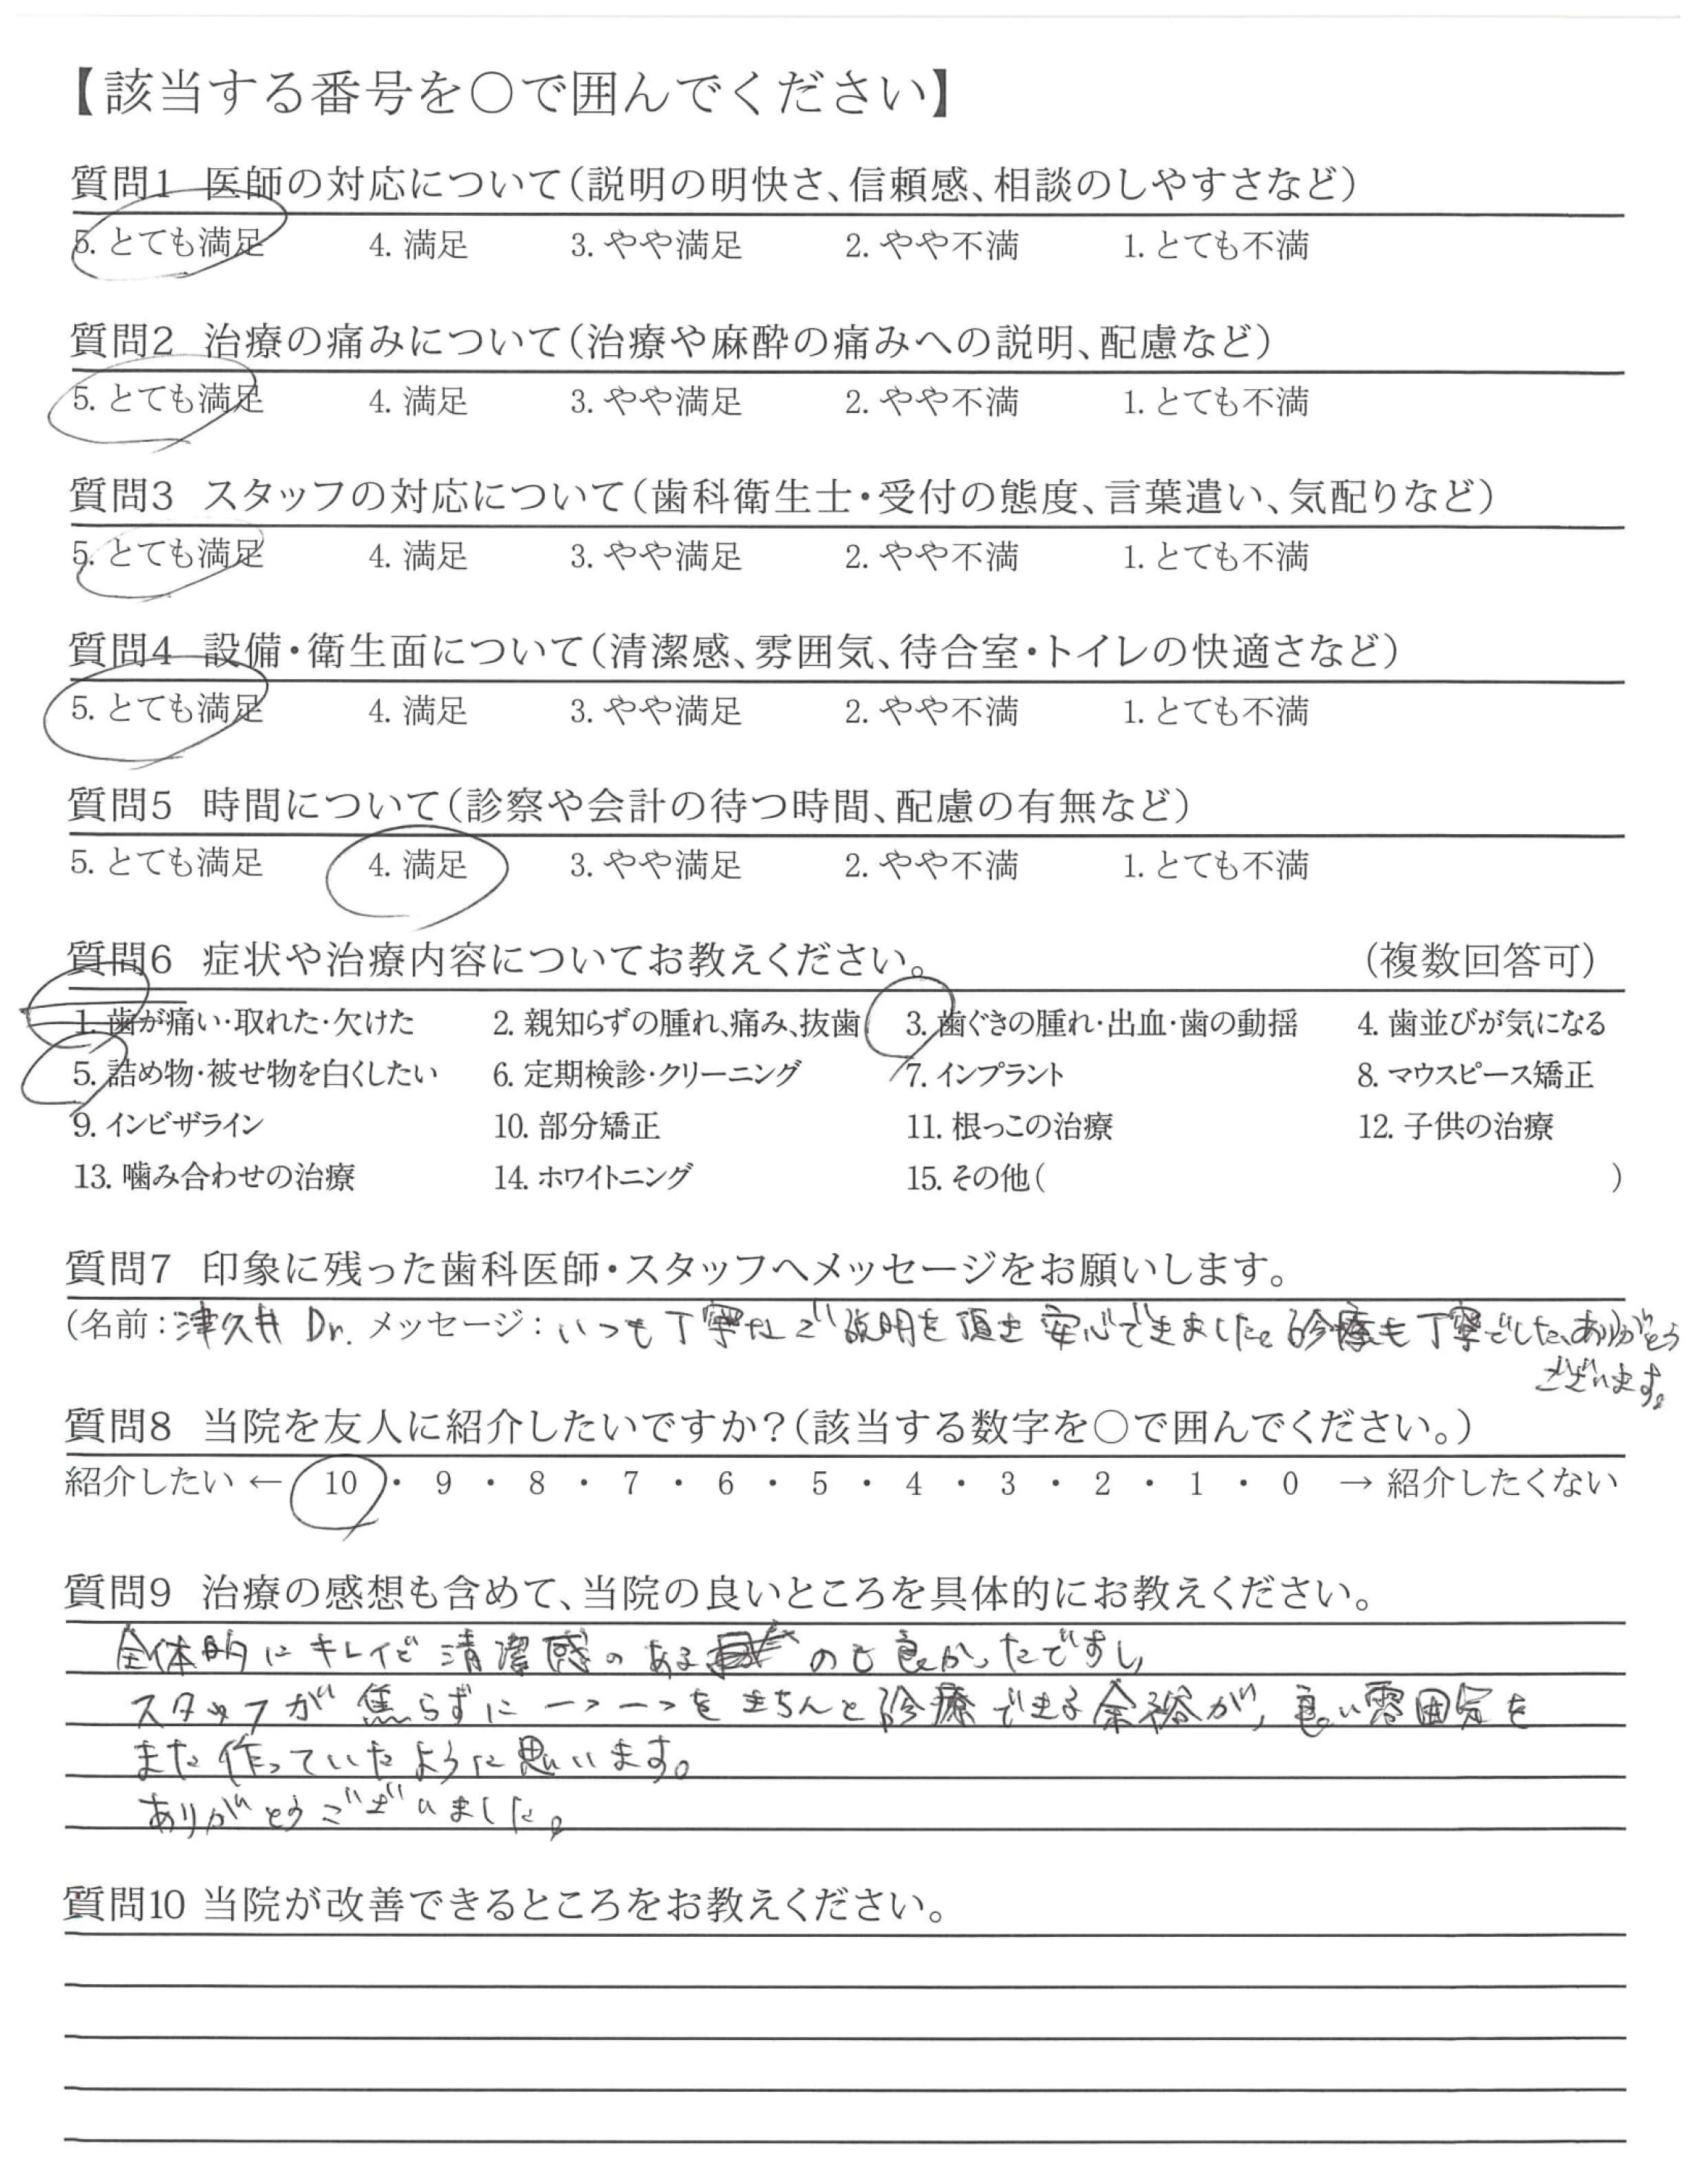 【該当する番号を○で囲んでください】
質問1 医師の対応について（説明の明快さ、信頼感、相談のしやすさなど）
5. とても満足 4. 満足 3. やや満足 2. やや不満 1. とても不満
質問2 治療の痛みについて（治療や麻酔の痛みへの説明、配慮など）
5. とても満足 4. 満足 3. やや満足 2. やや不満 1. とても不満
質問3 スタッフの対応について（歯科衛生士・受付の態度、言葉遣い、気配りなど）
5. とても満足 4. 満足 3. やや満足 2. やや不満 1. とても不満
質問4 設備・衛生面について（清潔感、雰囲気、待合室・トイレの快適さなど）
5. とても満足 4. 満足 3. やや満足 2. やや不満 1. とても不満
質問5 時間について（診察や会計の待つ時間、配慮の有無など）
5. とても満足 4. 満足 3. やや満足 2. やや不満 1. とても不満
質問6 症状や治療内容についてお教えください。 （複数回答可）
1. 歯が痛い・取れた・欠けた 2. 親知らずの腫れ、痛み、抜歯 3. 歯ぐきの腫れ・出血・歯の動揺 4. 歯並びが気になる
5. 詰め物・被せ物を白くしたい 6. 定期検診・クリーニング 7. インプラント 8. マウスピース矯正
9. インビザライン 10. 部分矯正 11. 根っこの治療 12. 子供の治療
13. 噛み合わせの治療 14. ホワイトニング 15. その他（ ）
質問7 印象に残った歯科医師・スタッフへメッセージをお願いします。
（名前：津久井 Dr. メッセージ：いつも丁寧なご説明を頂き安心できました。診療も丁寧でした、ありがとう
ございます。
質問8 当院を友人に紹介したいですか？（該当する数字を○で囲んでください。）
紹介したい ← 10 ・ 9 ・ 8 ・ 7 ・ 6 ・ 5 ・ 4 ・ 3 ・ 2 ・ 1 ・ 0 → 紹介したくない
質問9 治療の感想も含めて、当院の良いところを具体的にお教えください。
全体的にキレイで清潔感のあるのも良かったですし、
スタッフが焦らずに一つ一つをきちんと診療できる余裕が、良い雰囲気を
また作っていたように思います。
ありがとうございました。
質問10 当院が改善できるところをお教えください。